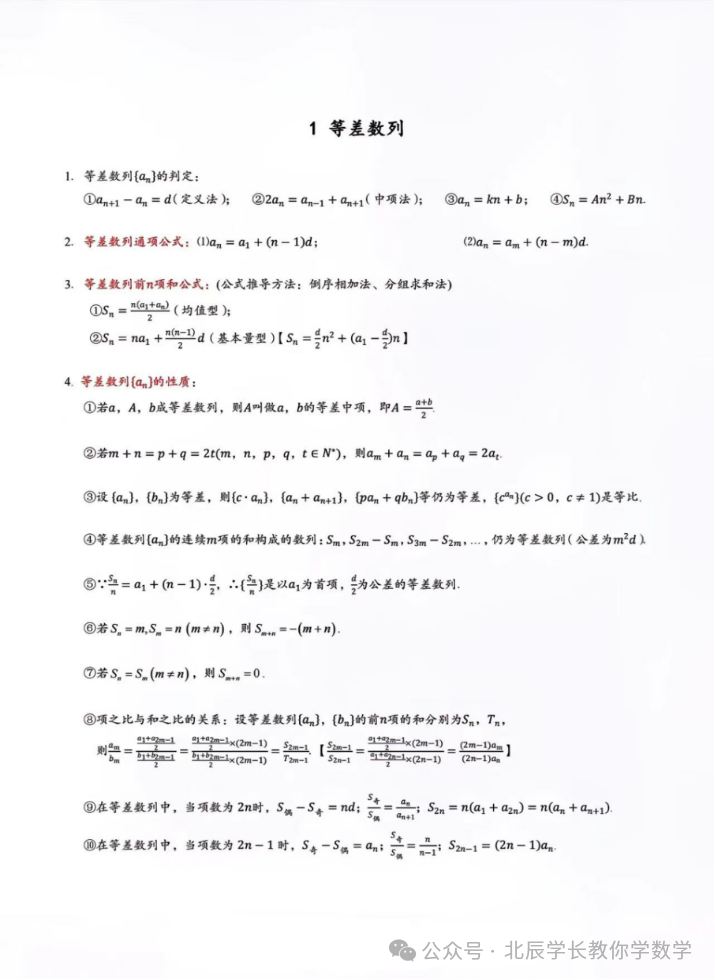 1 等差数列
1. 等差数列{aₙ}的判定：
①aₙ₊₁ − aₙ = d（定义法）； ②2aₙ = aₙ₋₁ + aₙ₊₁（中项法）； ③aₙ = kn + b； ④Sₙ = An² + Bn.
2. 等差数列通项公式：⑴aₙ = a₁ + (n − 1)d； ⑵aₙ = aₘ + (n − m)d.
3. 等差数列前n项和公式：(公式推导方法：倒序相加法、分组求和法)
①Sₙ = n(a₁+aₙ)/2（均值型）；
②Sₙ = na₁ + n(n−1)/2 d（基本量型）【Sₙ = d/2 n² + (a₁ − d/2)n】
4. 等差数列{aₙ}的性质：
①若a，A，b成等差数列，则A叫做a，b的等差中项，即A = (a+b)/2.
②若m + n = p + q = 2t(m，n，p，q，t ∈ N*)，则aₘ + aₙ = aₚ + a_q = 2aₜ.
③设{aₙ}，{bₙ}为等差，则{c·aₙ}，{aₙ + aₙ₊₁}，{paₙ + qbₙ}等仍为等差，{c^(aₙ)}(c > 0，c ≠ 1)是等比.
④等差数列{aₙ}的连续m项的和构成的数列：Sₘ，S₂ₘ − Sₘ，S₃ₘ − S₂ₘ，…，仍为等差数列（公差为m²d）.
⑤∵Sₙ/n = a₁ + (n − 1)·d/2，∴{Sₙ/n}是以a₁为首项，d/2为公差的等差数列.
⑥若Sₙ = m,Sₘ = n (m ≠ n)，则Sₘ₊ₙ = −(m + n).
⑦若Sₙ = Sₘ (m ≠ n)，则Sₘ₊ₙ = 0.
⑧项之比与和之比的关系：设等差数列{aₙ}，{bₙ}的前n项的和分别为Sₙ，Tₙ，
则aₘ/bₘ = ((a₁+a₂ₘ₋₁)/2)/((b₁+b₂ₘ₋₁)/2) = ((a₁+a₂ₘ₋₁)/2×(2m−1))/((b₁+b₂ₘ₋₁)/2×(2m−1)) = S₂ₘ₋₁/T₂ₘ₋₁.【S₂ₘ₋₁/S₂ₙ₋₁ = ((a₁+a₂ₘ₋₁)/2×(2m−1))/((a₁+a₂ₙ₋₁)/2×(2n−1)) = (2m−1)aₘ/(2n−1)aₙ】
⑨在等差数列中，当项数为 2n时，S偶 − S奇 = nd；S奇/S偶 = aₙ/aₙ₊₁；S₂ₙ = n(a₁ + a₂ₙ) = n(aₙ + aₙ₊₁).
⑩在等差数列中，当项数为 2n − 1 时，S奇 − S偶 = aₙ；S奇/S偶 = n/(n−1)；S₂ₙ₋₁ = (2n − 1)aₙ.
公众号 · 北辰学长教你学数学